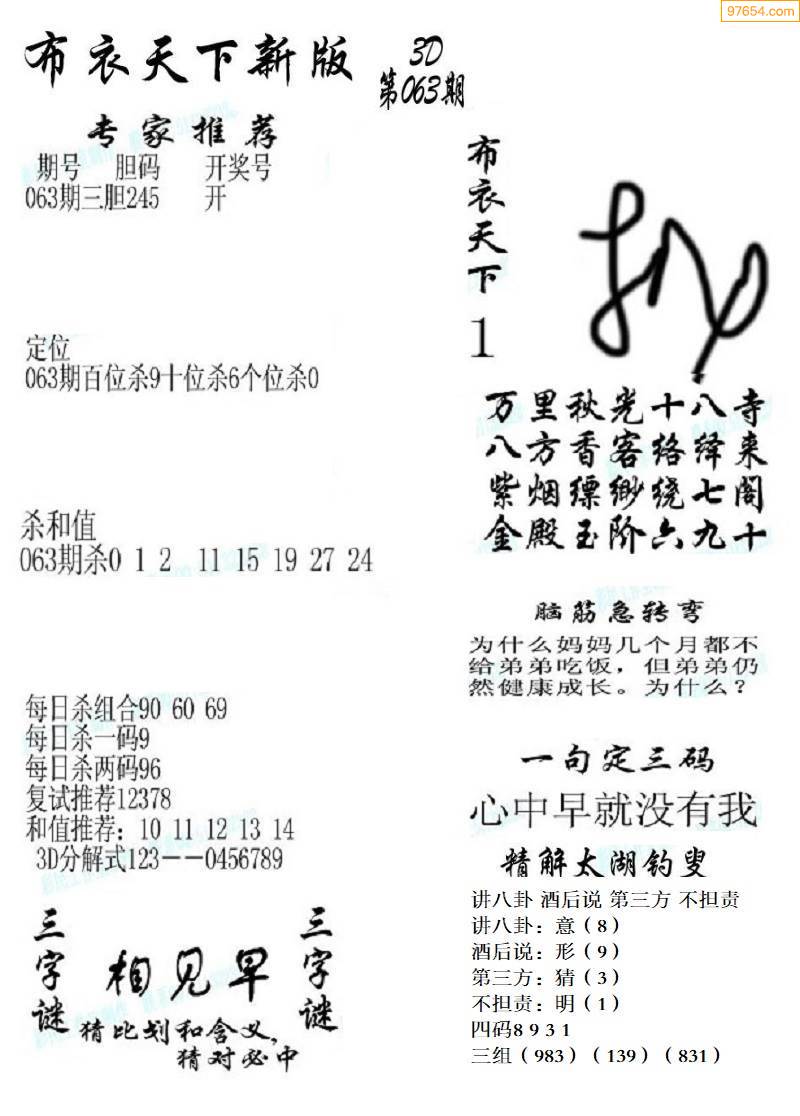 97654.com
布衣天下新版
3D
第063期
专家推荐
期号 胆码 开奖号
063期三胆245 开
定位
063期百位杀9十位杀6个位杀0
杀和值
063期杀0 1 2 11 15 19 27 24
每日杀组合90 60 69
每日杀一码9
每日杀两码96
复试推荐12378
和值推荐: 10 11 12 13 14
3D分解式123——0456789
三字谜
相见早
三字谜
猜比划和含义,
猜对必中
布衣天下
1
万里秋光十八寺
八方香客络绎来
紫烟缥缈绕七阁
金殿玉阶六九十
脑筋急转弯
为什么妈妈几个月都不
给弟弟吃饭，但弟弟仍
然健康成长。为什么？
一句定三码
心中早就没有我
精解太湖钓叟
讲八卦 酒后说 第三方 不担责
讲八卦：意（8）
酒后说：形（9）
第三方：猜（3）
不担责：明（1）
四码8 9 3 1
三组（983）（139）（831）